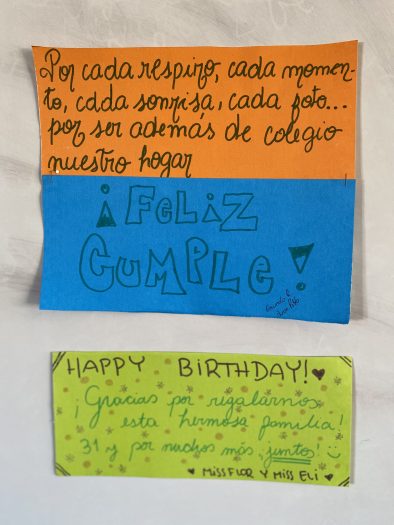 Por cada respiro, cada momen-
to, cada sonrisa, cada foto...
por ser además de colegio
nuestro hogar
¡FELIZ
CUMPLE!
HAPPY BIRTHDAY!
¡Gracias por regalarnos
esta hermosa familia!
31 y por muchos más, juntos!
MISS FLOR Y MISS ELI